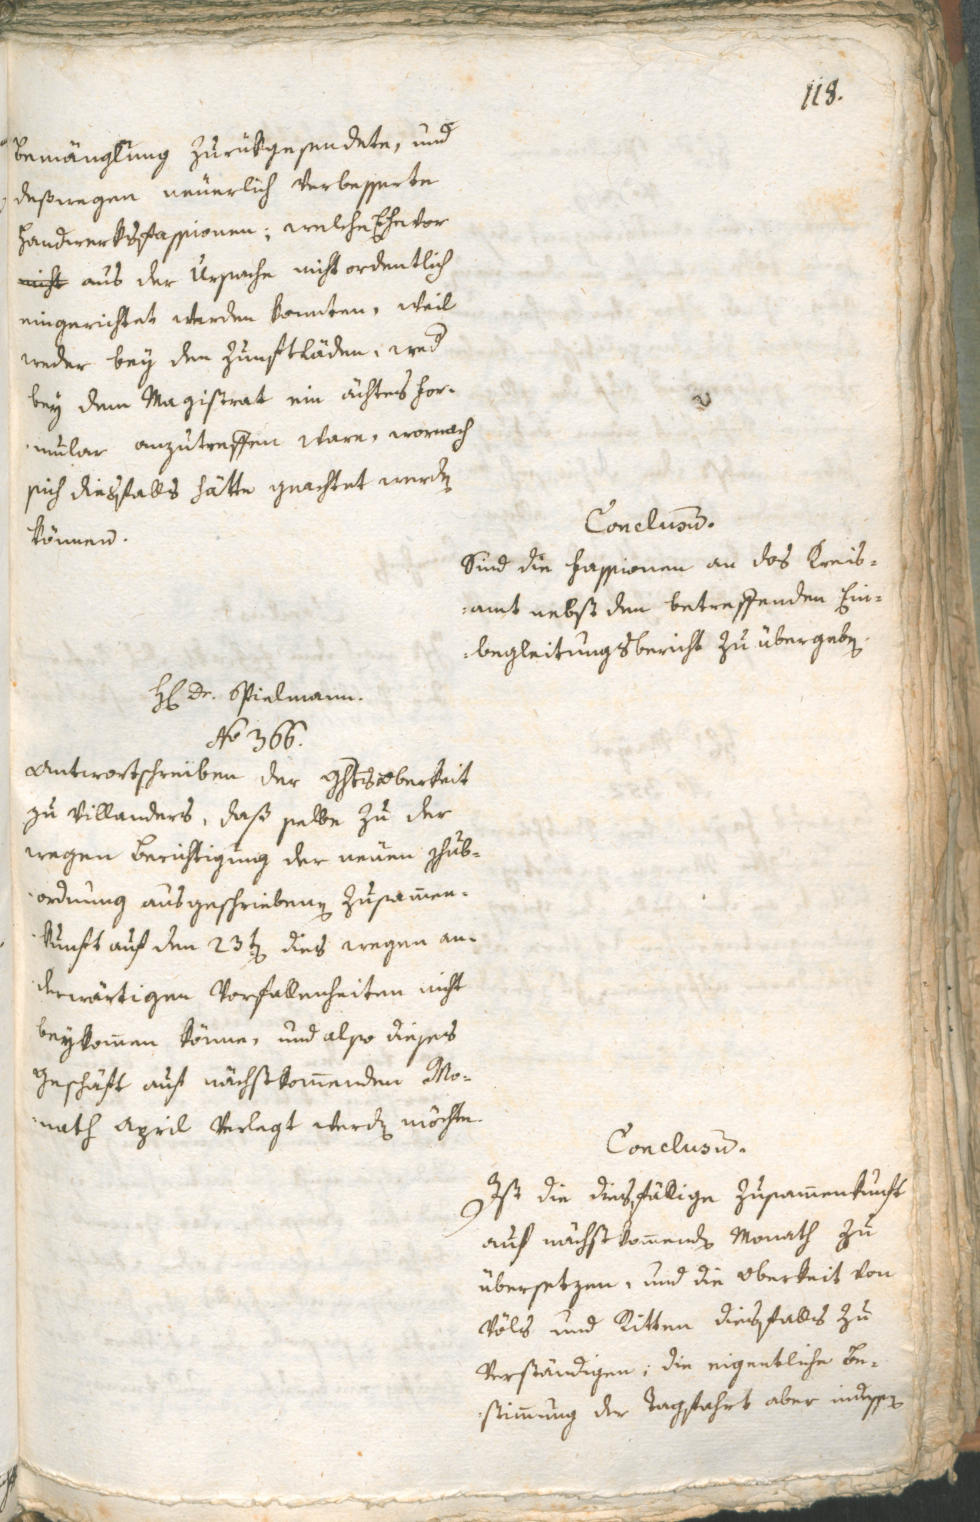 118.
Bemänglung zurükgesendete, und
deßwegen neüerlich verbesserte
Handwerksfassionen; welche Ehevor
nicht aus der Ursache nicht ordentlich
eingerichtet werden konnten, weil
weder bey den Zunftläden, wed
bey dem Magistrat ein ächtes For-
mular anzutreffen ware, wornach
sich diesfalls hätte geachtet werdn
können.
Conclusū.
Sind die Fassionen an das Kreis=
=amt nebst den betreffenden Ein=
=begleitungsbericht zu übergebn.
H Dr. Spielmann.
No 366.
Antwortschreiben der Ghtsoberkeit
zu Villanders, daß selbe zu der
wegen Berichtigung der neüen Schub=
ordnung ausgeschriebenn Zusam̄en=
kunft auf den 23tn dies wegen an=
derwärtigen Vorfallenheiten nicht
beykom̄en könne, und also dieses
Geschäft auf nächstkom̄enden Mo=
nath April verlegt werdn möchte.
Conclusū.
Ist die diesfällige Zusam̄enkunft
auf nächstkom̄endn Monath zu
übersetzen, und die Oberkeit von
Völs und Ritten diesfalls zu
verständigen; die eigentliche Be=
stim̄ung der Tagfahrt aber indessn